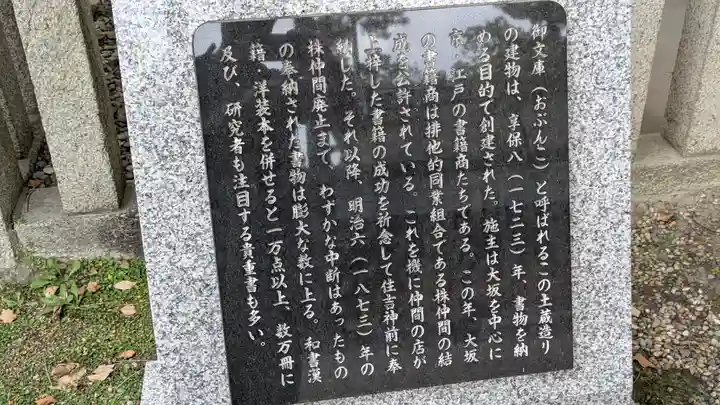 御文庫(おぶんこ)と呼ばれるこの土蔵造り
の建物は、享保八(一七二三)年、書物を納
める目的で創建された。施主は大坂を中心に
京、江戸の書籍商たちである。この年、大坂
の書籍商は排他的同業組合である株仲間の結
成を公許されている。これを機に仲間の店が
上梓した書籍の成功を祈念して住吉神前に奉
納した。それ以降、明治六(一八七三)年の
株仲間廃止まで、わずかな中断はあったもの
の奉納された書物は膨大な数に上る。和書漢
籍・洋装本を併せると一万点以上、数万冊に
及び、研究者も注目する貴重書も多い。